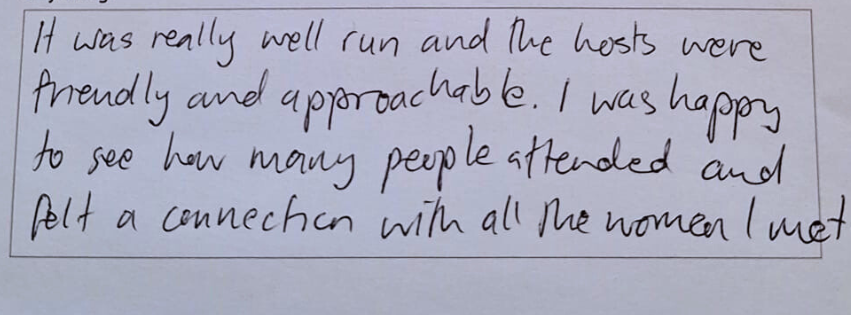 It was really well run and the hosts were
friendly and approachable. I was happy
to see how many people attended and
felt a connection with all the women I met